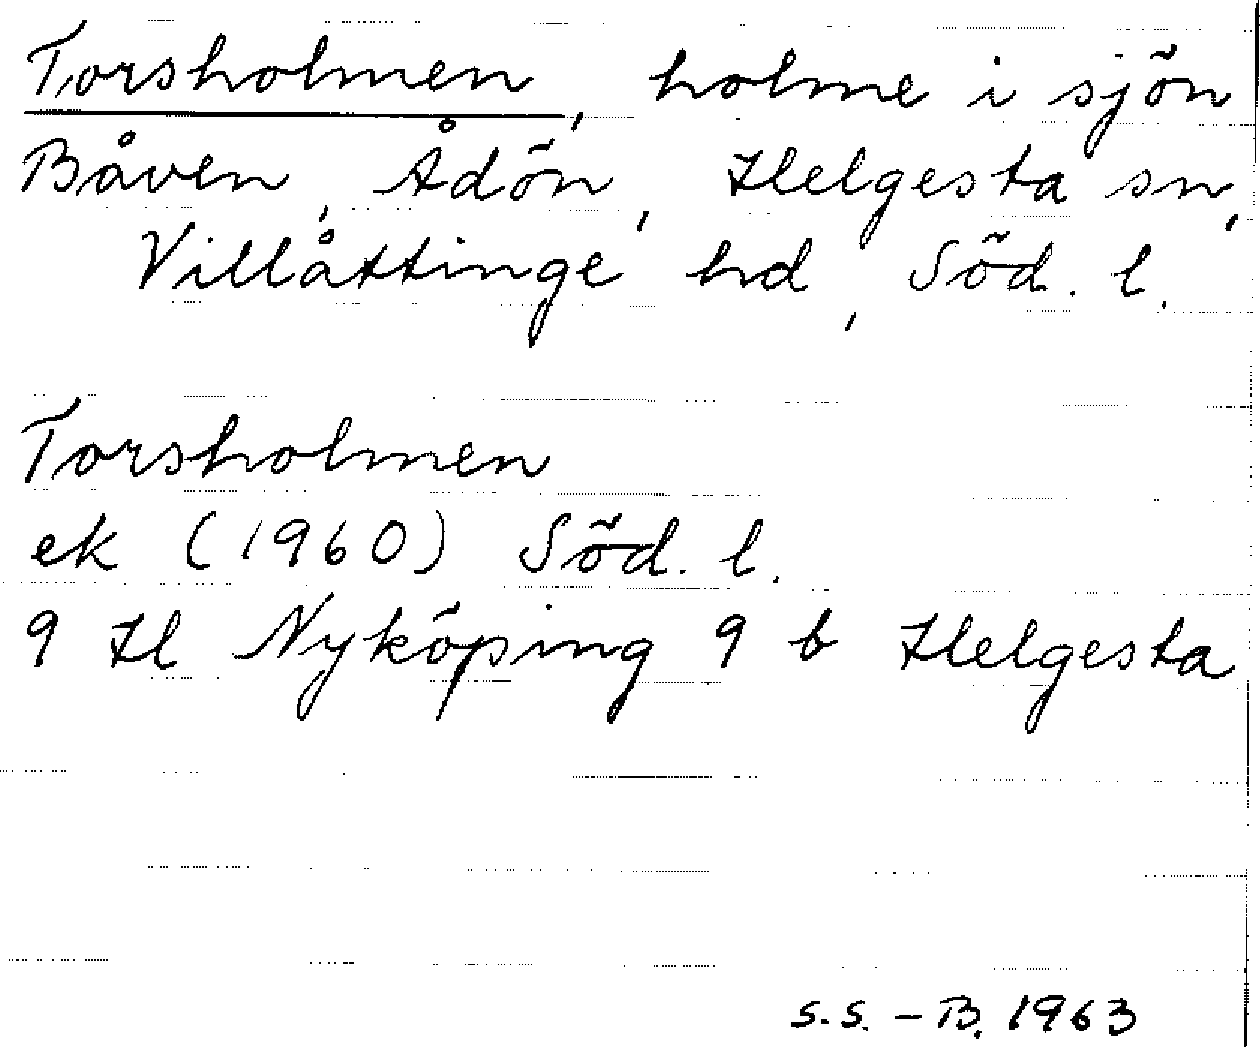 Torsholmen, holme i sjön
Båven, Ådön, Helgesta sn,
Villåttinge hd, Söd. l.
Torsholmen
ek (1960) Söd. l.
9 H Nyköping 9 b Helgesta
S.S. – B. 1963